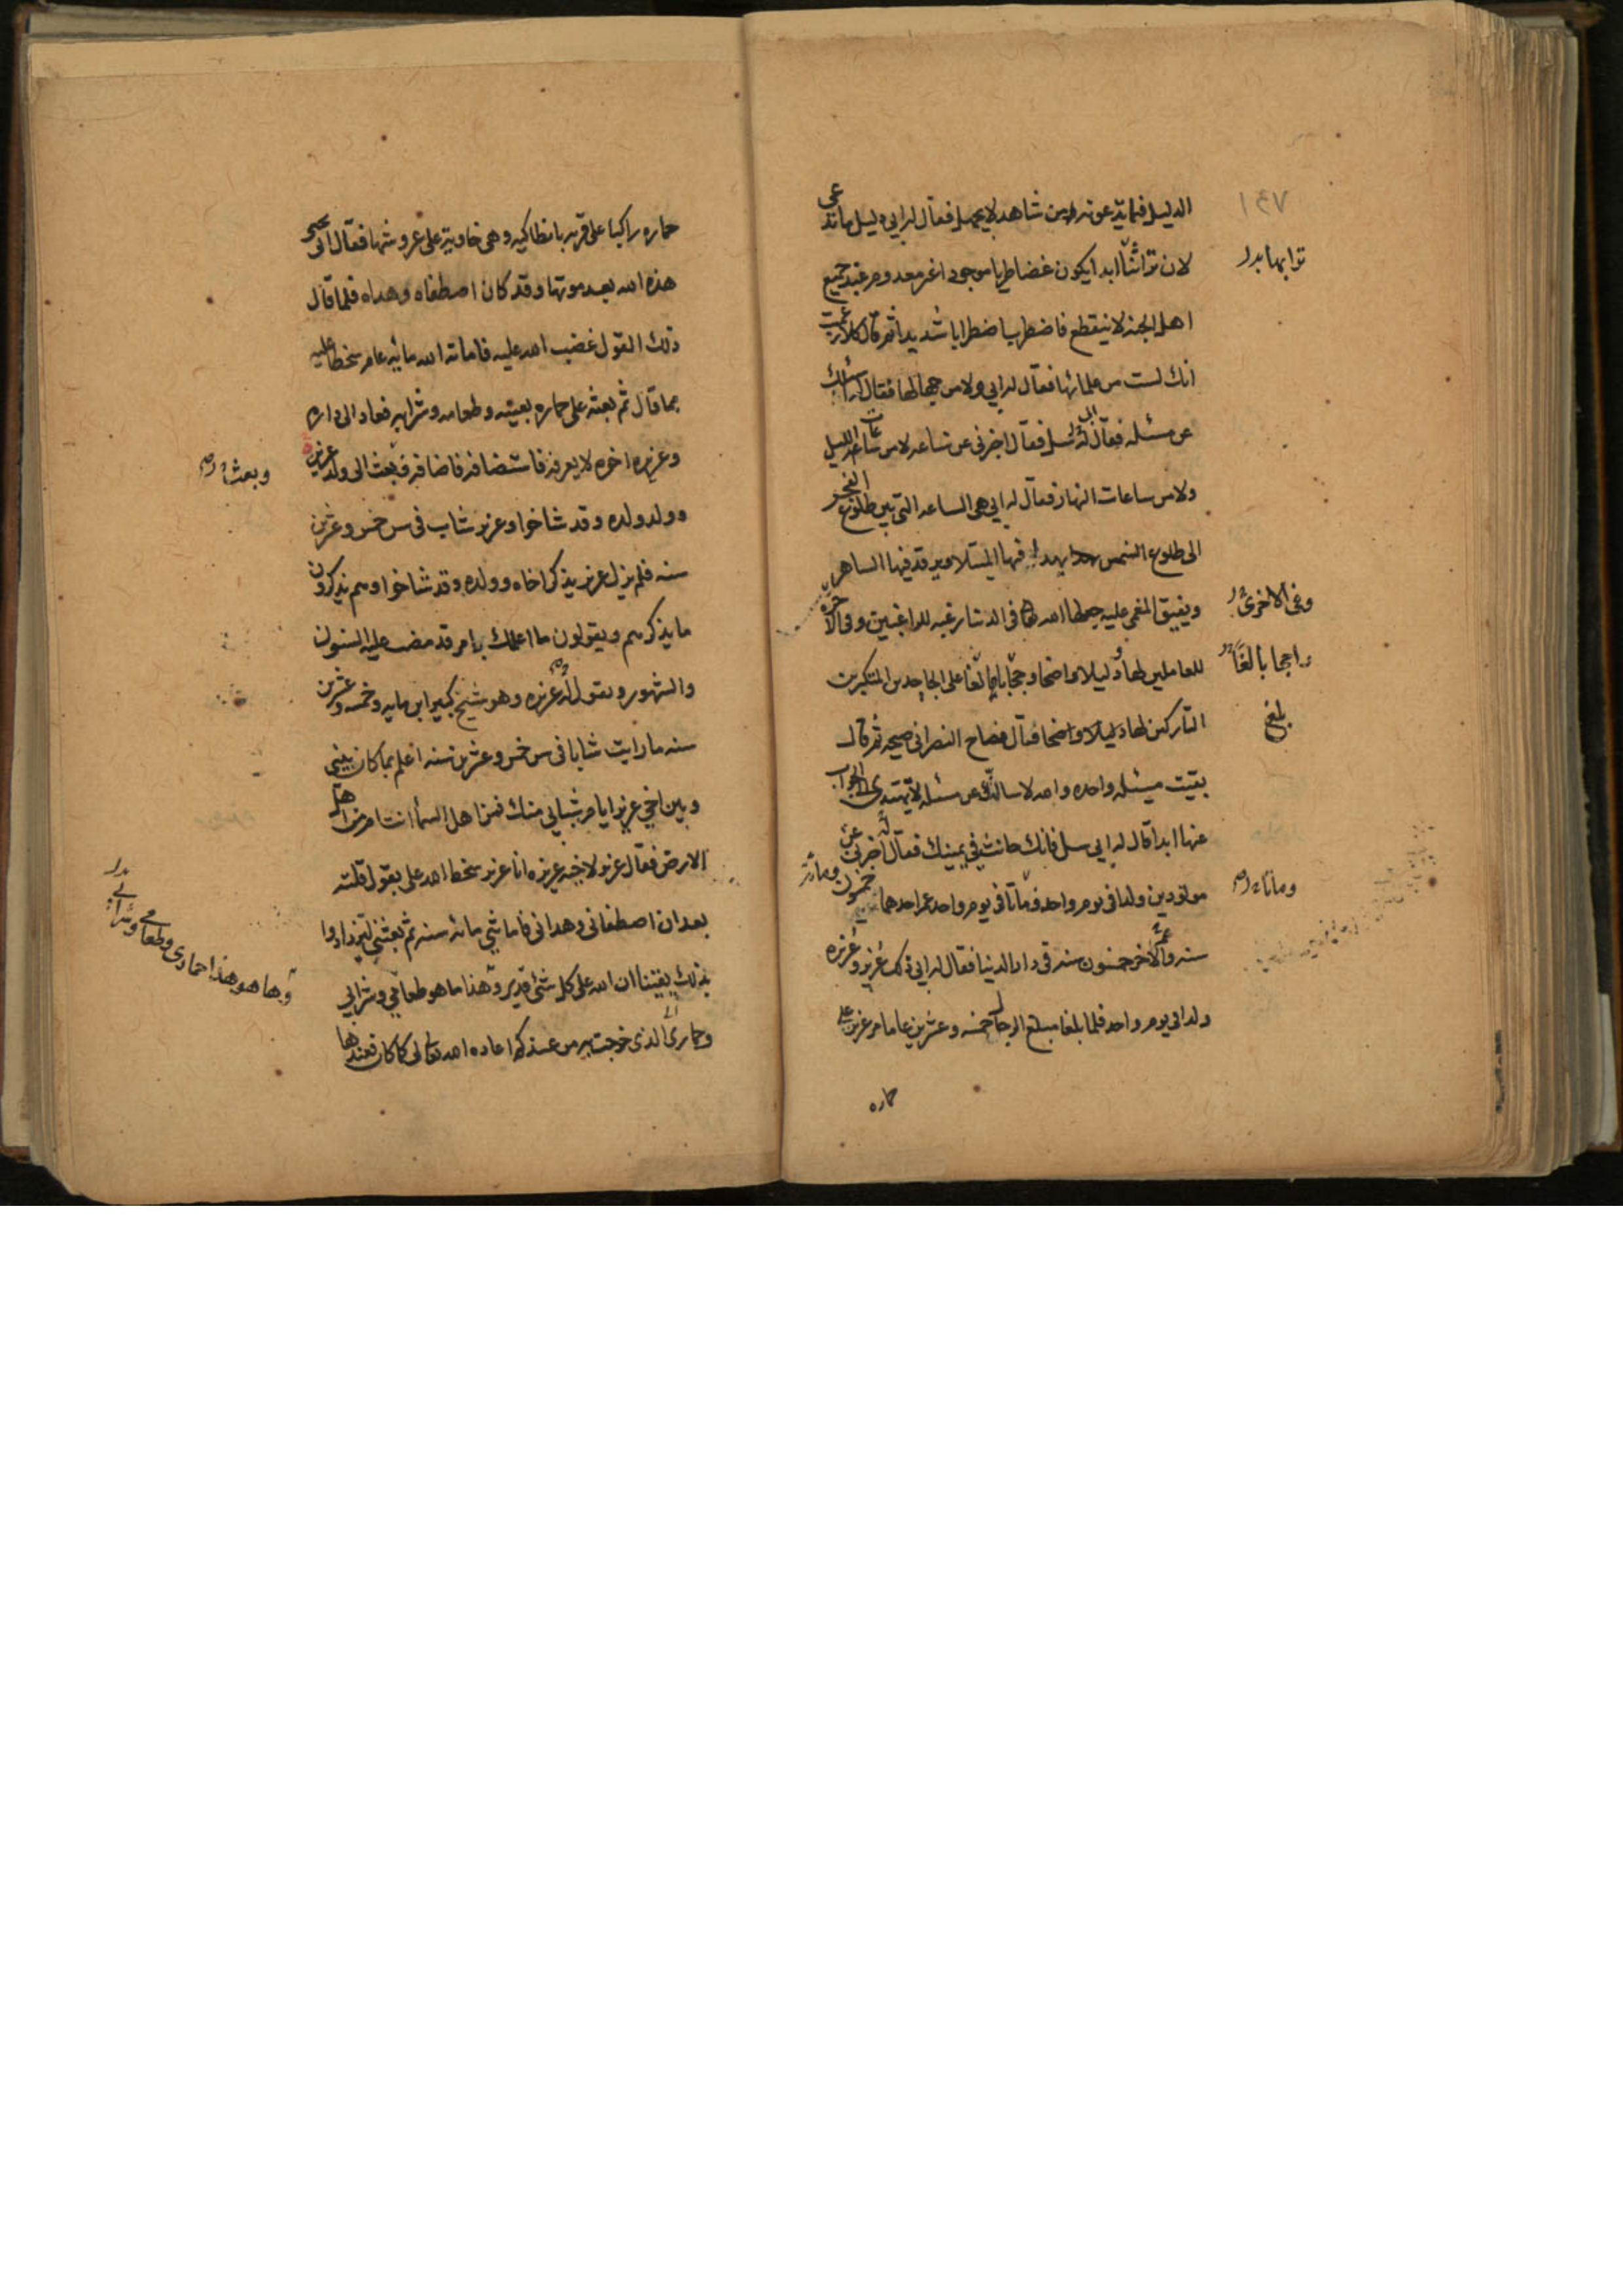 ١٤٧
الدليل فيما تدعون من شاهد لا يجهل فقال له ابي دليل ما ندعى
لان ترابنا ابدا يكون غضا طريا موجودا غير معدوم عند جميع
ترابها بدل
اهل الجنه لا ينقطع فاضطربا اضطرابا شديدا ثم قال كلا زعمت
انك لست من علمائها فقال له ابي ولا من جهالها فقال له اسئلك
عن مسئله فقال له ابي سل فقال اخبرنى عن ساعه لا من ساعات الليل
ولا من ساعات النهار فقال له ابي هي الساعه التي بين طلوع الفجر
الى طلوع الشمس يهدا فيها المبتلا ويرقد فيها الساهر
ويفيق المغمى عليه جعلها الله فى الدنيا رغبه للراغبين وفى الاخره
وفى الاخرى
للعاملين لها ودليلا واضحا وحجابا بالغا على الجاحدين المتكبرين
حاجبا بالغا
التاركين لها دليلا واضحا قال فصاح النصرانى صيحه ثم قال
بلغ
بقيت مسئله واحده والله لاسالنك عن مسئله لا تهتدى الى الجواب
عنها ابدا قال له ابى سل فانك حانث في يمينك فقال اخبرنى عن
مولودين ولدا فى يوم واحد وماتا فى يوم واحد عمر احدهما خمسون ومائة
وماتا
سنه وعمر الاخر خمسون سنه فى دار الدنيا فقال له ابى ذلك عزير وعزيره
ولدا في يوم واحد فلما بلغا مبلغ الرجال خمسه وعشرين عاما مر عزير على
حماره
حماره راكبا على قريه بانطاكيه وهى خاويه على عروشها فقال انى يحيى
هذه الله بعد موتها وقد كان اصطفاه وهداه فلما قال
ذلك القول غضب الله عليه فاماته الله مائه عام سخطا عليه
بما قال ثم بعثه على حماره بعينه وطعامه وشرابه فعاد الى داره
وعزيره اخوه لا يعرفه فاستضافه فاضافه فبعث الى ولد عزيره
وبعث
وولد ولده وقد شاخوا وعزير شاب فى سن خمس وعشرين
سنه فلم يزل عزير يذكر اخاه وولده وقد شاخوا وهم يذكرون
ما يذكرهم ويقولون ما اعلمك بامر قد مضت عليه السنون
والشهور ويقول له عزيره وهو شيخ كبير ابن مايه وخمسه وعشرين
سنه ما رايت شابا فى سن خمس وعشرين سنه اعلم بما كان بينى
وبين اخي عزير ايام شبابي منك فمن اهل السما انت ام من اهل
الارض فقال عزير لاخيه عزيره انا عزير سخط الله على بقول قلته
بعد ان اصطفانى وهدانى فاماتني مائه سنه ثم بعثني لتزدادوا
بذلك يقينا ان الله على كل شئ قدير وهذا ما هو طعامي وشرابي
وها هو هذا حمارى وطعامي وشرابي بدل
وحمارى الذى خرجت به من عندكم اعاده الله تعالى كما كان فعندها